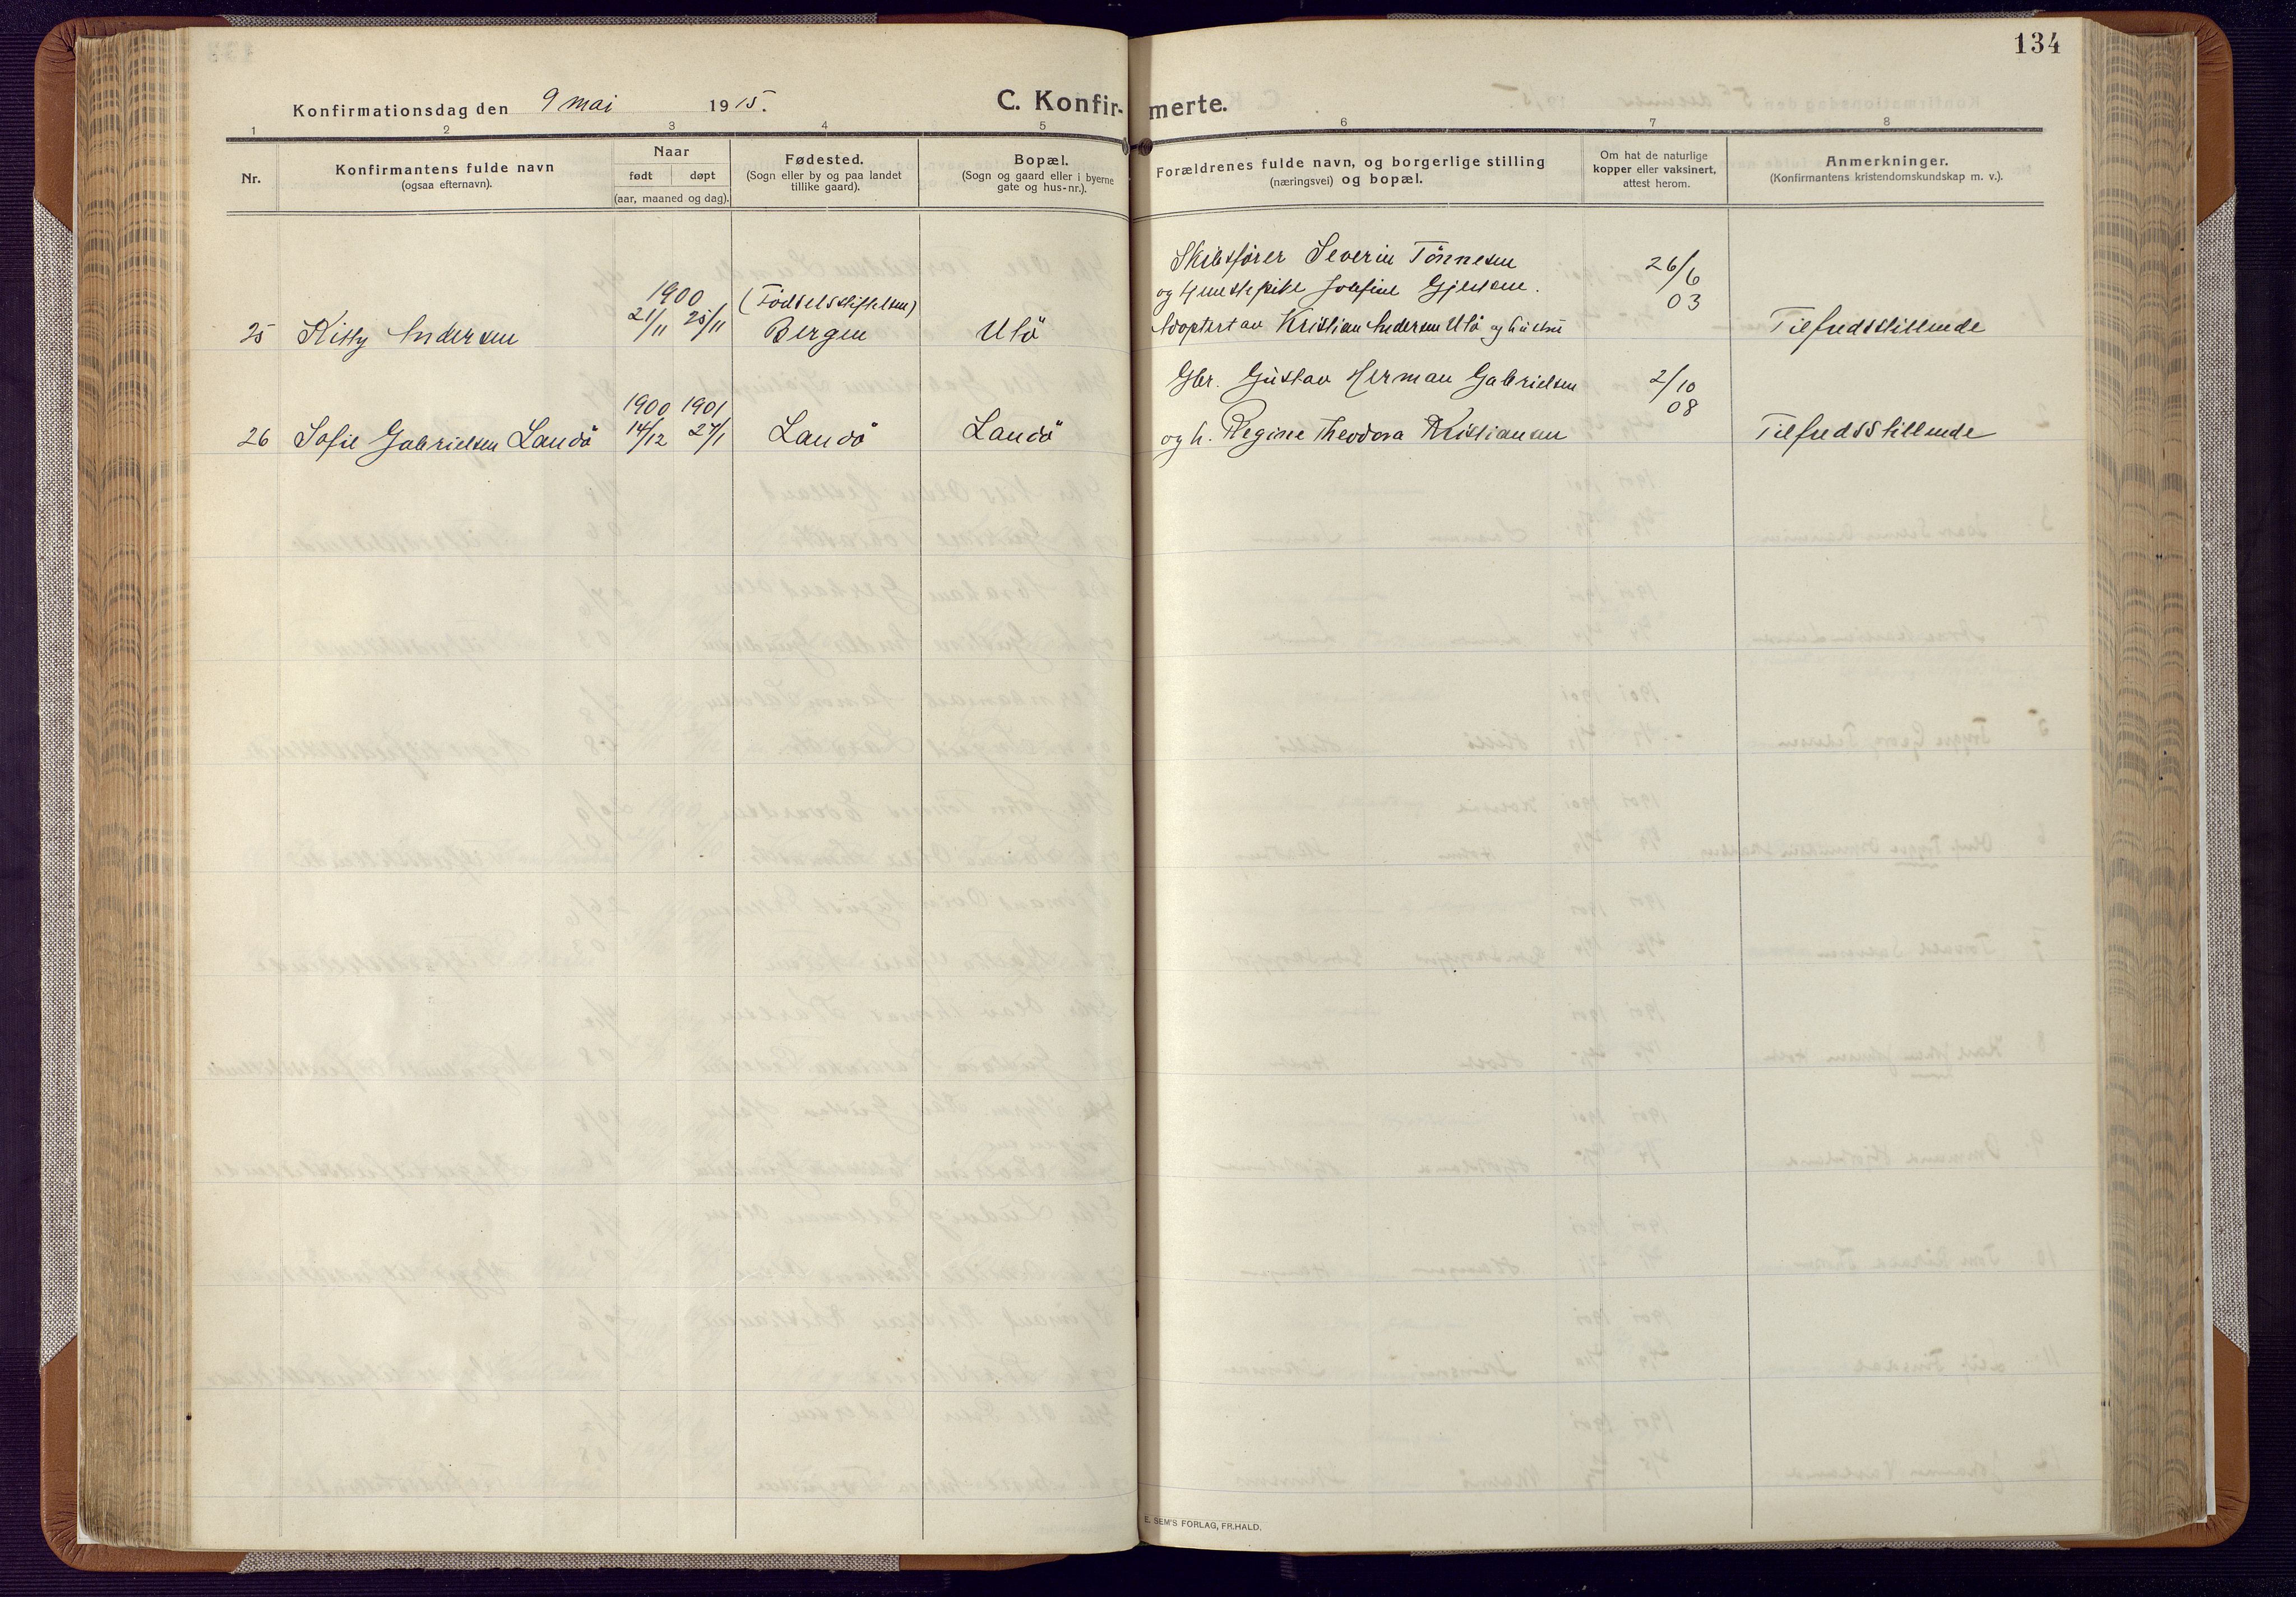 134
Konfirmationsdag den 9 mai 1915.
C. Konfir-merte.
1 2 3 4 5 6 7 8
Nr.
Konfirmantens fulde navn
(ogsaa efternavn).
Naar
født døpt
(aar, maaned og dag).
Fødested.
(Sogn eller by og paa landet
tillike gaard).
Bopæl.
(Sogn og gaard eller i byerne
gate og hus-nr.).
Forældrenes fulde navn, og borgerlige stilling
(næringsvei) og bopæl.
Om hat de naturlige
kopper eller vaksinert,
attest herom.
Anmerkninger.
(Konfirmantens kristendomskundskap m. v.).
Skibsfører Severin Tönnesen 26/6
1900 (Födselsstiftelsen) og tjenestepike Josefine 03
25 Kitty Andersen 21/11 25/11 Bergen Utö Adoptert av Kristian Andersen Utö og hustru Tilfredsstillende
Gbr. Gustav Herman Gabrielsen 2/10
1900 1901 08
26 Sofie Gabrielsen Landö 14/12 27/1 Landö Landö og h. Regine Theodora Kristiansen Tilfredsstillende
E. SEM'S FORLAG, FR.HALD.